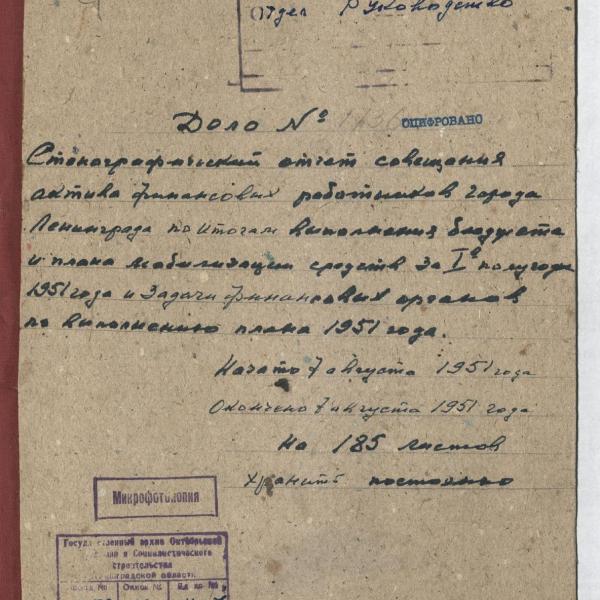 Отдел Руководство
Дело №
ОЦИФРОВАНО
Стенографический отчет совещания
актива финансовых работников города
Ленинграда по итогам выполнения бюджета
и плана мобилизации средств за I полугодие
1951 года и задачи финансовых органов
по выполнению плана 1951 года.
Начато 7 августа 1951 года
Окончено 7 августа 1951 года
На 185 листов
Хранить постоянно
Микрофотокопия
Государственный архив Октябрьской
и Социалистического
строительства
области